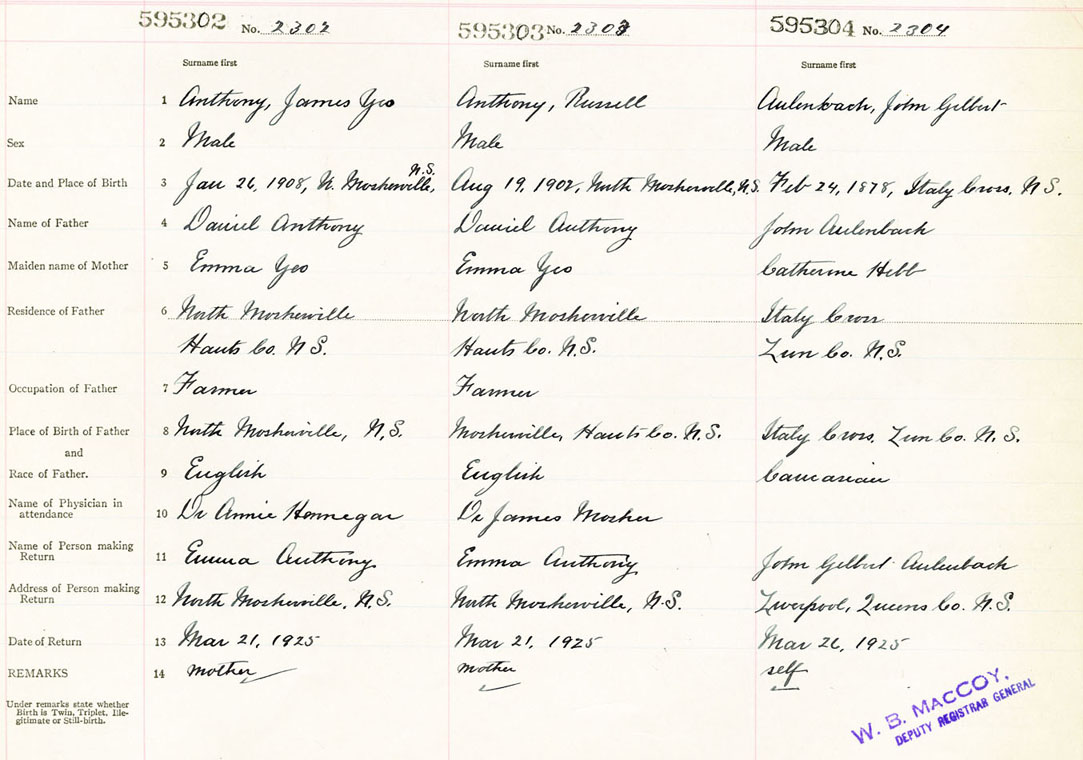 595302 No. 2302 595303 No. 2303 595304 No. 2304
Surname first Surname first Surname first
Name 1 Anthony, James Yeo Anthony, Russell Aulenbach, John Gilbert
Sex 2 Male Male Male
Date and Place of Birth 3 Jan 26, 1908, N. Mosherville, N.S. Aug 19, 1902, North Mosherville, N.S. Feb 24, 1878, Italy Cross, N.S.
Name of Father 4 Daniel Anthony Daniel Anthony John Aulenbach
Maiden name of Mother 5 Emma Yeo Emma Yeo Catherine Hebb
Residence of Father 6 North Mosherville North Mosherville Italy Cross
Hants Co. N.S. Hants Co. N.S. Lun Co. N.S.
Occupation of Father 7 Farmer Farmer
Place of Birth of Father 8 North Mosherville, N.S. Mosherville, Hants Co. N.S. Italy Cross, Lun Co. N.S.
and
Race of Father. 9 English English Caucasian
Name of Physician in
attendance 10 Dr Annie Hennegar Dr James Mosher
Name of Person making
Return 11 Emma Anthony Emma Anthony John Gilbert Aulenbach
Address of Person making
Return 12 North Mosherville, N.S. North Mosherville, N.S. Liverpool, Queens Co. N.S.
Date of Return 13 Mar 21, 1925 Mar 21, 1925 Mar 26, 1925
REMARKS 14 mother mother self
Under remarks state whether
Birth is Twin, Triplet, Ille-
gitimate or Still-birth.
W. B. MACCOY.
DEPUTY REGISTRAR GENERAL